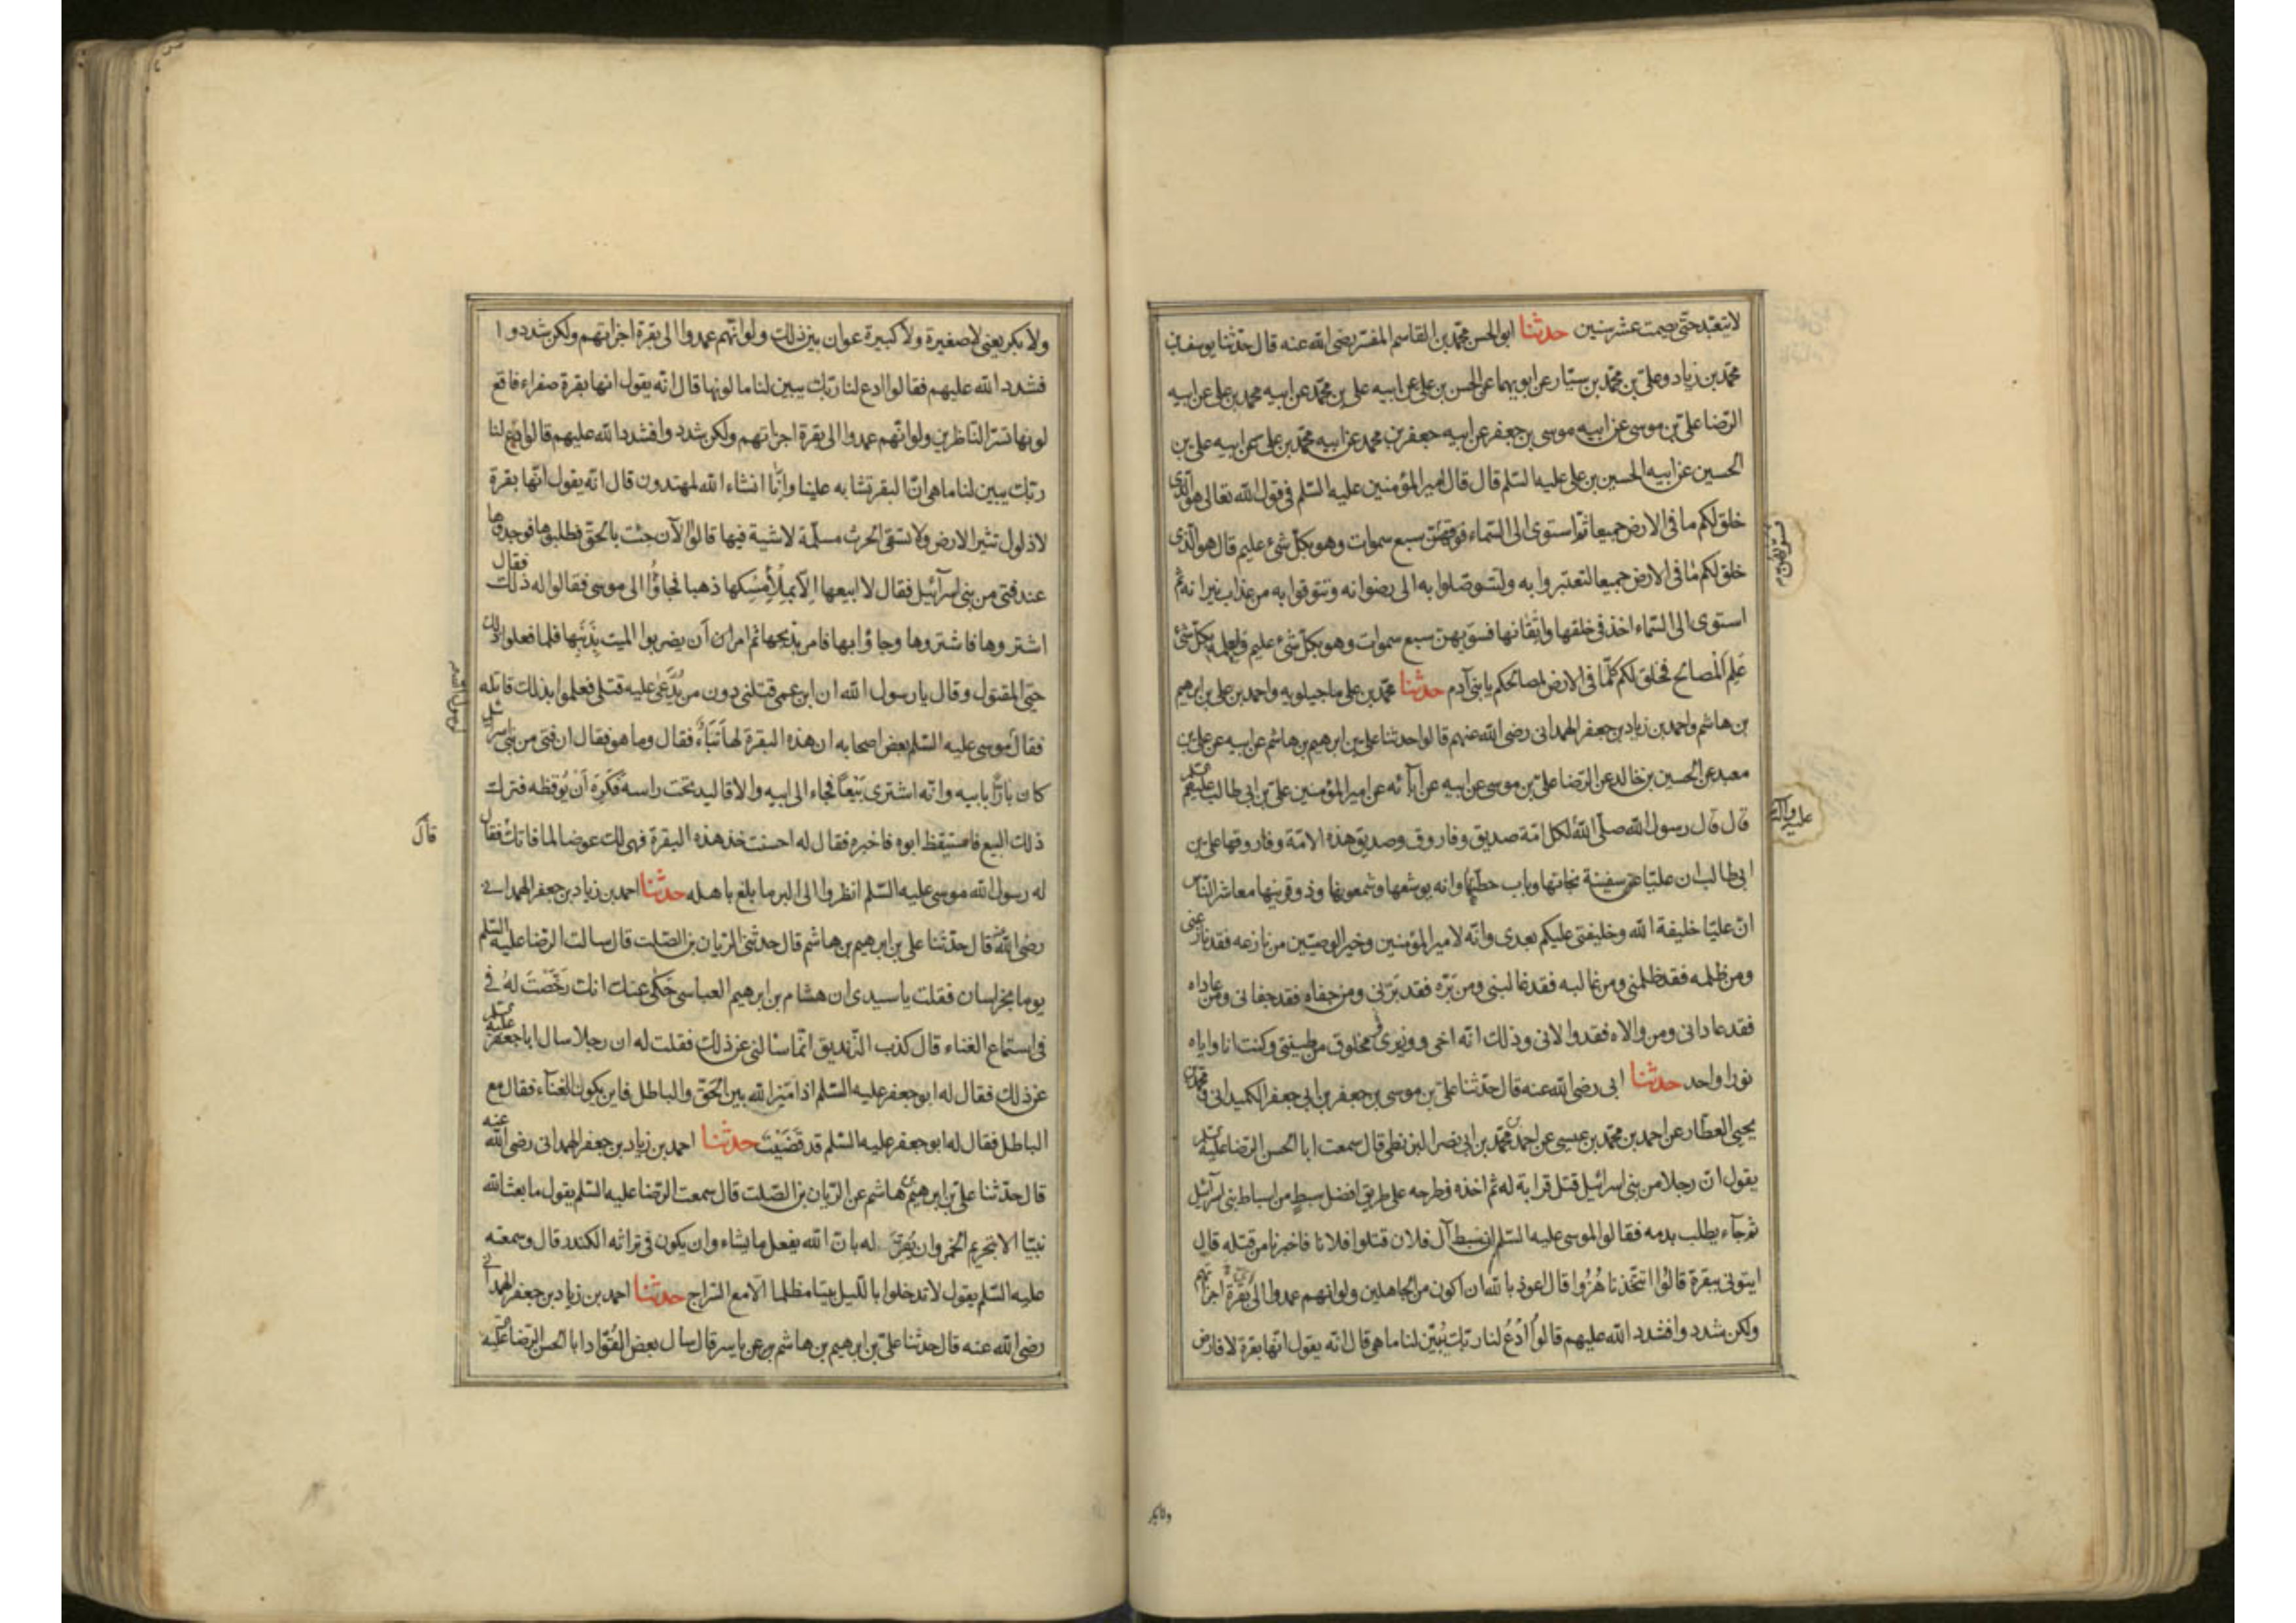 لا يتعبد حتى يصمت عشر سنين حدثنا ابو الحسن محمد بن القاسم المفسر رضى الله عنه قال حدثنا يوسف بن
محمد بن زياد وعلى بن محمد بن سيار عن ابويهما عن الحسن بن على عن ابيه على بن محمد عن ابيه محمد بن على عن ابيه
الرضا على بن موسى عن ابيه موسى بن جعفر عن ابيه جعفر بن محمد عن ابيه محمد بن على عن ابيه على بن
الحسين عن ابيه الحسين بن على عليه السلم قال قال امير المؤمنين عليه السلم فى قول الله تعالى هو الذى
خلق لكم ما فى الارض جميعا ثم استوى الى السماء فسويهن سبع سموات وهو بكل شئ عليم قال هو الذى
خلق لكم ما فى الارض جميعا لتعتبروا به ولتتوصلوا به الى رضوانه وتتوقوا به من عذاب نيرانه ثم
استوى الى السماء اخذ فى خلقها واتقانها فسويهن سبع سموات وهو بكل شئ عليم ولعلمه بكل شئ
علم المصالح فخلق لكم كلما فى الارض لمصالحكم يا بنى آدم حدثنا محمد بن على ماجيلويه واحمد بن على بن ابرهيم
بن هاشم واحمد بن زياد بن جعفر الهمدانى رضى الله عنهم قالوا حدثنا على بن ابرهيم بن هاشم عن ابيه عن على بن
معبد عن الحسين بن خالد عن الرضا على بن موسى عن ابيه عن آبائه عن امير المؤمنين على بن ابى طالب عليهم
قال قال رسول الله صلى الله لكل امة صديق وفاروق وصديق هذه الامة وفاروقها على بن
ابى طالب ان عليا هو سفينة نجاتها وباب حطتها وانه يوشعها وشمعونها وذو قرنيها معاشر الناس
ان عليا خليفة الله وخليفتى عليكم بعدى وانه لامير المؤمنين وخير الوصيين من نازعه فقد نازعنى
ومن ظلمه فقد ظلمنى ومن غالبه فقد غالبنى ومن بره فقد برنى ومن جفاه فقد جفانى ومن عاداه
فقد عادانى ومن والاه فقد والانى وذلك انه اخى ووزيرى ومخلوق من طينتى وكنت انا واياه
نورا واحد حدثنا ابى رضى الله عنه قال حدثنا على بن موسى بن جعفر بن ابى جعفر الكميدانى ومحمد بن
يحيى العطار عن احمد بن محمد بن عيسى عن احمد بن محمد بن ابى نصر البزنطى قال سمعت ابا الحسن الرضا عليه
يقول ان رجلا من بنى اسرائيل قتل قرابة له ثم اخذه فطرحه على طريق افضل سبط من اسباط بنى اسرآئيل
ثم جآء يطلب بدمه فقالوا لموسى عليه السلم ان سبط آل فلان قتلوا فلانا فاخبرنا من قتله قال
ايتونى ببقرة قالوا اتتخذنا هزوا قال اعوذ بالله ان اكون من الجاهلين ولو انهم عمدوا الى بقرة اجزاتهم
ولكن شددوا فشدد الله عليهم قالوا ادع لنا ربك يبين لنا ما هى قال انه يقول انها بقرة لا فارض
ولا بكر
ولا بكر يعنى لا صغيرة ولا كبيرة عوان بين ذلك ولو انهم عمدوا الى بقرة اجزاتهم ولكن شددوا
فشدد الله عليهم فقالوا ادع لنا ربك يبين لنا ما لونها قال انه يقول انها بقرة صفراء فاقع
لونها تسر الناظرين ولو انهم عمدوا الى بقرة اجزاتهم ولكن شددوا فشدد الله عليهم قالوا ادع لنا
ربك يبين لنا ما هى ان البقر تشابه علينا وانا انشاء الله لمهتدون قال انه يقول انها بقرة
لا ذلول تثير الارض ولا تسقى الحرث مسلمة لاشية فيها قالوا الآن جئت بالحق فطلبوها فوجدوها
عند فتى من بنى اسرآئيل فقال لا ابيعها الا بملأ مسكها ذهبا فجاؤا الى موسى فقالوا له ذلك فقال
اشتروها فاشتروها وجاؤا بها فامر بذبحها ثم امر ان يضربوا الميت بذنبها فلما فعلوا ذلك
حيى المقتول وقال يا رسول الله ان ابن عمى قتلنى دون من يدعى عليه قتلى فعلموا بذلك قاتله
فقال موسى عليه السلم بعض اصحابه ان هذه البقرة لها نباء فقال وما هو فقال ان فتى من بنى اسرائيل
كان بارا بابيه وانه اشترى بيعا فجاء الى ابيه والاقاليد تحت راسه فكره ان يوقظه فترك
ذلك البيع فاستيقظ ابوه فاخبره فقال له احسنت خذ هذه البقرة فهى لك عوضا لما فاتك فقال
قال
له رسول الله موسى عليه السلم انظروا الى البر ما بلغ باهله حدثنا احمد بن زياد بن جعفر الهمدانى
رضى الله عنه قال حدثنا على بن ابرهيم بن هاشم قال حدثنى الريان بن الصلت قال سالت الرضا عليه السلم
يوما بخراسان فقلت يا سيدى ان هشام بن ابرهيم العباسى حكى عنك انك رخصت له فى
فى استماع الغناء قال كذب الزنديق انما سالنى عن ذلك فقلت له ان رجلا سال ابا جعفر عليه
عن ذلك فقال له ابو جعفر عليه السلم اذا ميز الله بين الحق والباطل فاين يكون الغنآء فقال مع
الباطل فقال له ابو جعفر عليه السلم قد قضيت حدثنا احمد بن زياد بن جعفر الهمدانى رضى الله عنه
قال حدثنا على بن ابرهيم بن هاشم عن الريان بن الصلت قال سمعت الرضا عليه السلم يقول ما بعث الله
نبيا الا بتحريم الخمر وان يقر له بان الله يفعل ما يشاء وان يكون فى تراثه الكندر قال وسمعته
عليه السلم يقول لا تدخلوا بالليل بيتا مظلما الا مع السراج حدثنا احمد بن زياد بن جعفر الهمدانى
رضى الله عنه قال حدثنا على بن ابرهيم بن هاشم عن ياسر قال سال بعض القواد ابا الحسن الرضا عليه